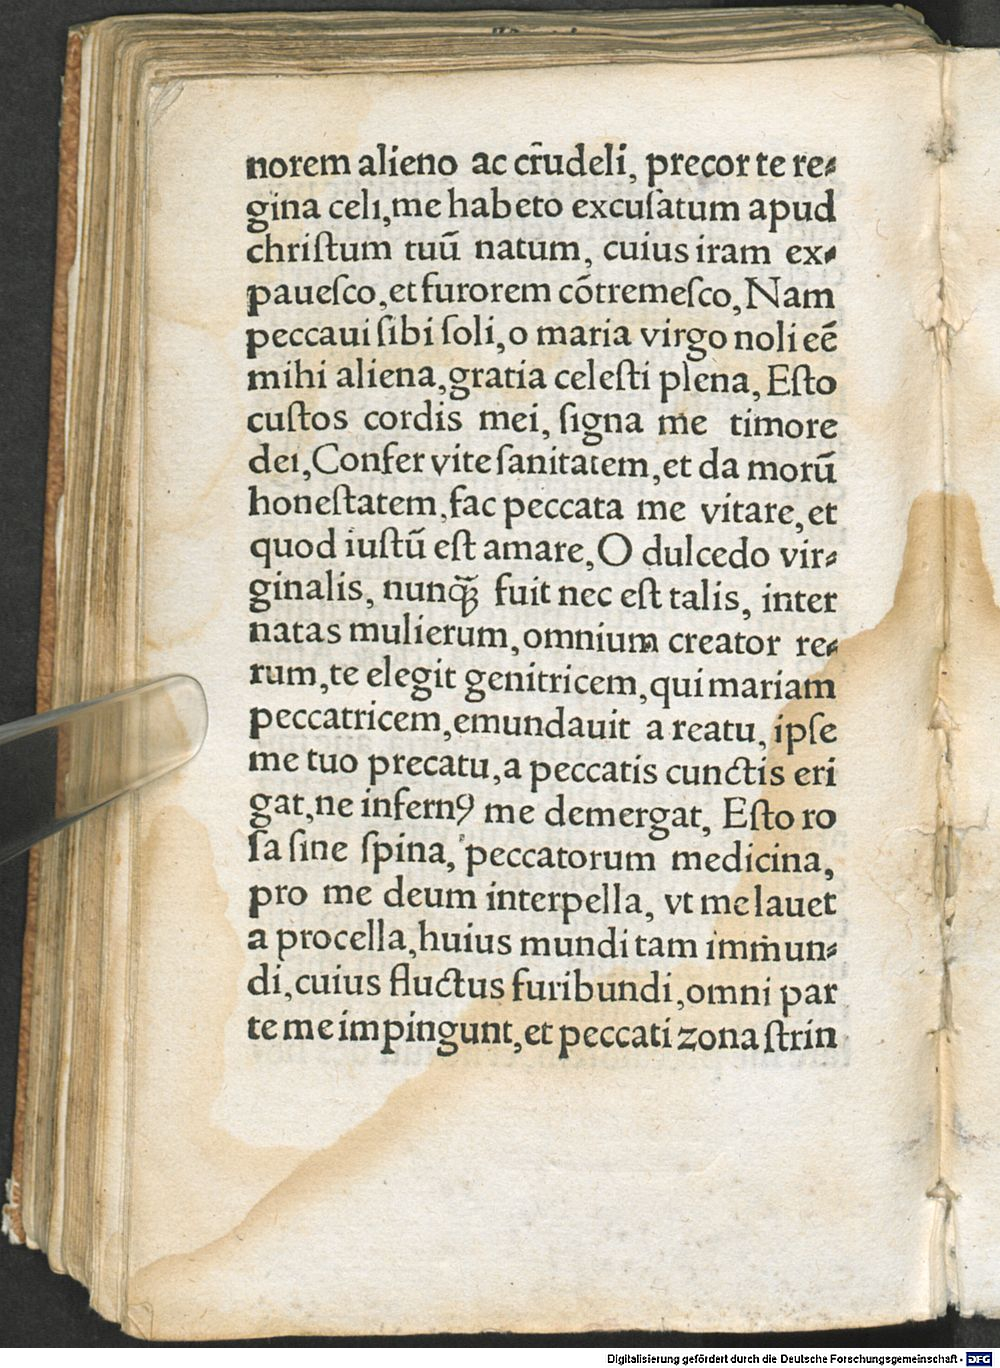 norem alieno ac cr̄udeli, precor te re⸗
gina celi,me habeto excuſatum apud
chriſtum tuū natum, cuius iram ex⸗
paueſco,et furorem cōtremeſco,Nam
peccaui ſibi ſoli,o maria virgo noli eē
mihi aliena,gratia celeſti plena,Eſto
cuſtos cordis mei, ſigna me timore
dei,Confer vite ſanitatem,et da morū
honeſtatem,fac peccata me vitare,et
quod iuſtū eſt amare,O dulcedo vir⸗
ginalis, nunꝗ̃ fuit nec eſt talis, inter
natas mulierum,omnium creator re⸗
rum,te elegit genitricem,qui mariam
peccatricem,emundauit a reatu, ipſe
me tuo precatu,a peccatis cunctis eri
gat,ne infernꝰ me demergat, Eſto ro
ſa ſine ſpina, peccatorum medicina,
pro me deum interpella, vt me lauet
a procella,huius mundi tam imm̄un⸗
di,cuius fluctus furibundi,omni par
te me impingunt,et peccati zona ſtrin
Digitalisierung gefördert durch die Deutsche Forschungsgemeinschaft - DFG